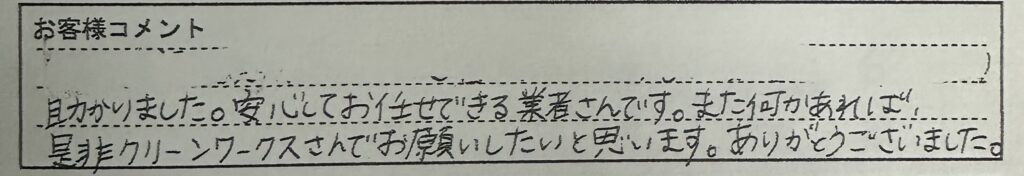 お客様コメント
助かりました。安心してお任せできる業者さんです。また何かあれば、
是非クリーンワークスさんでお願いしたいと思います。ありがとうございました。